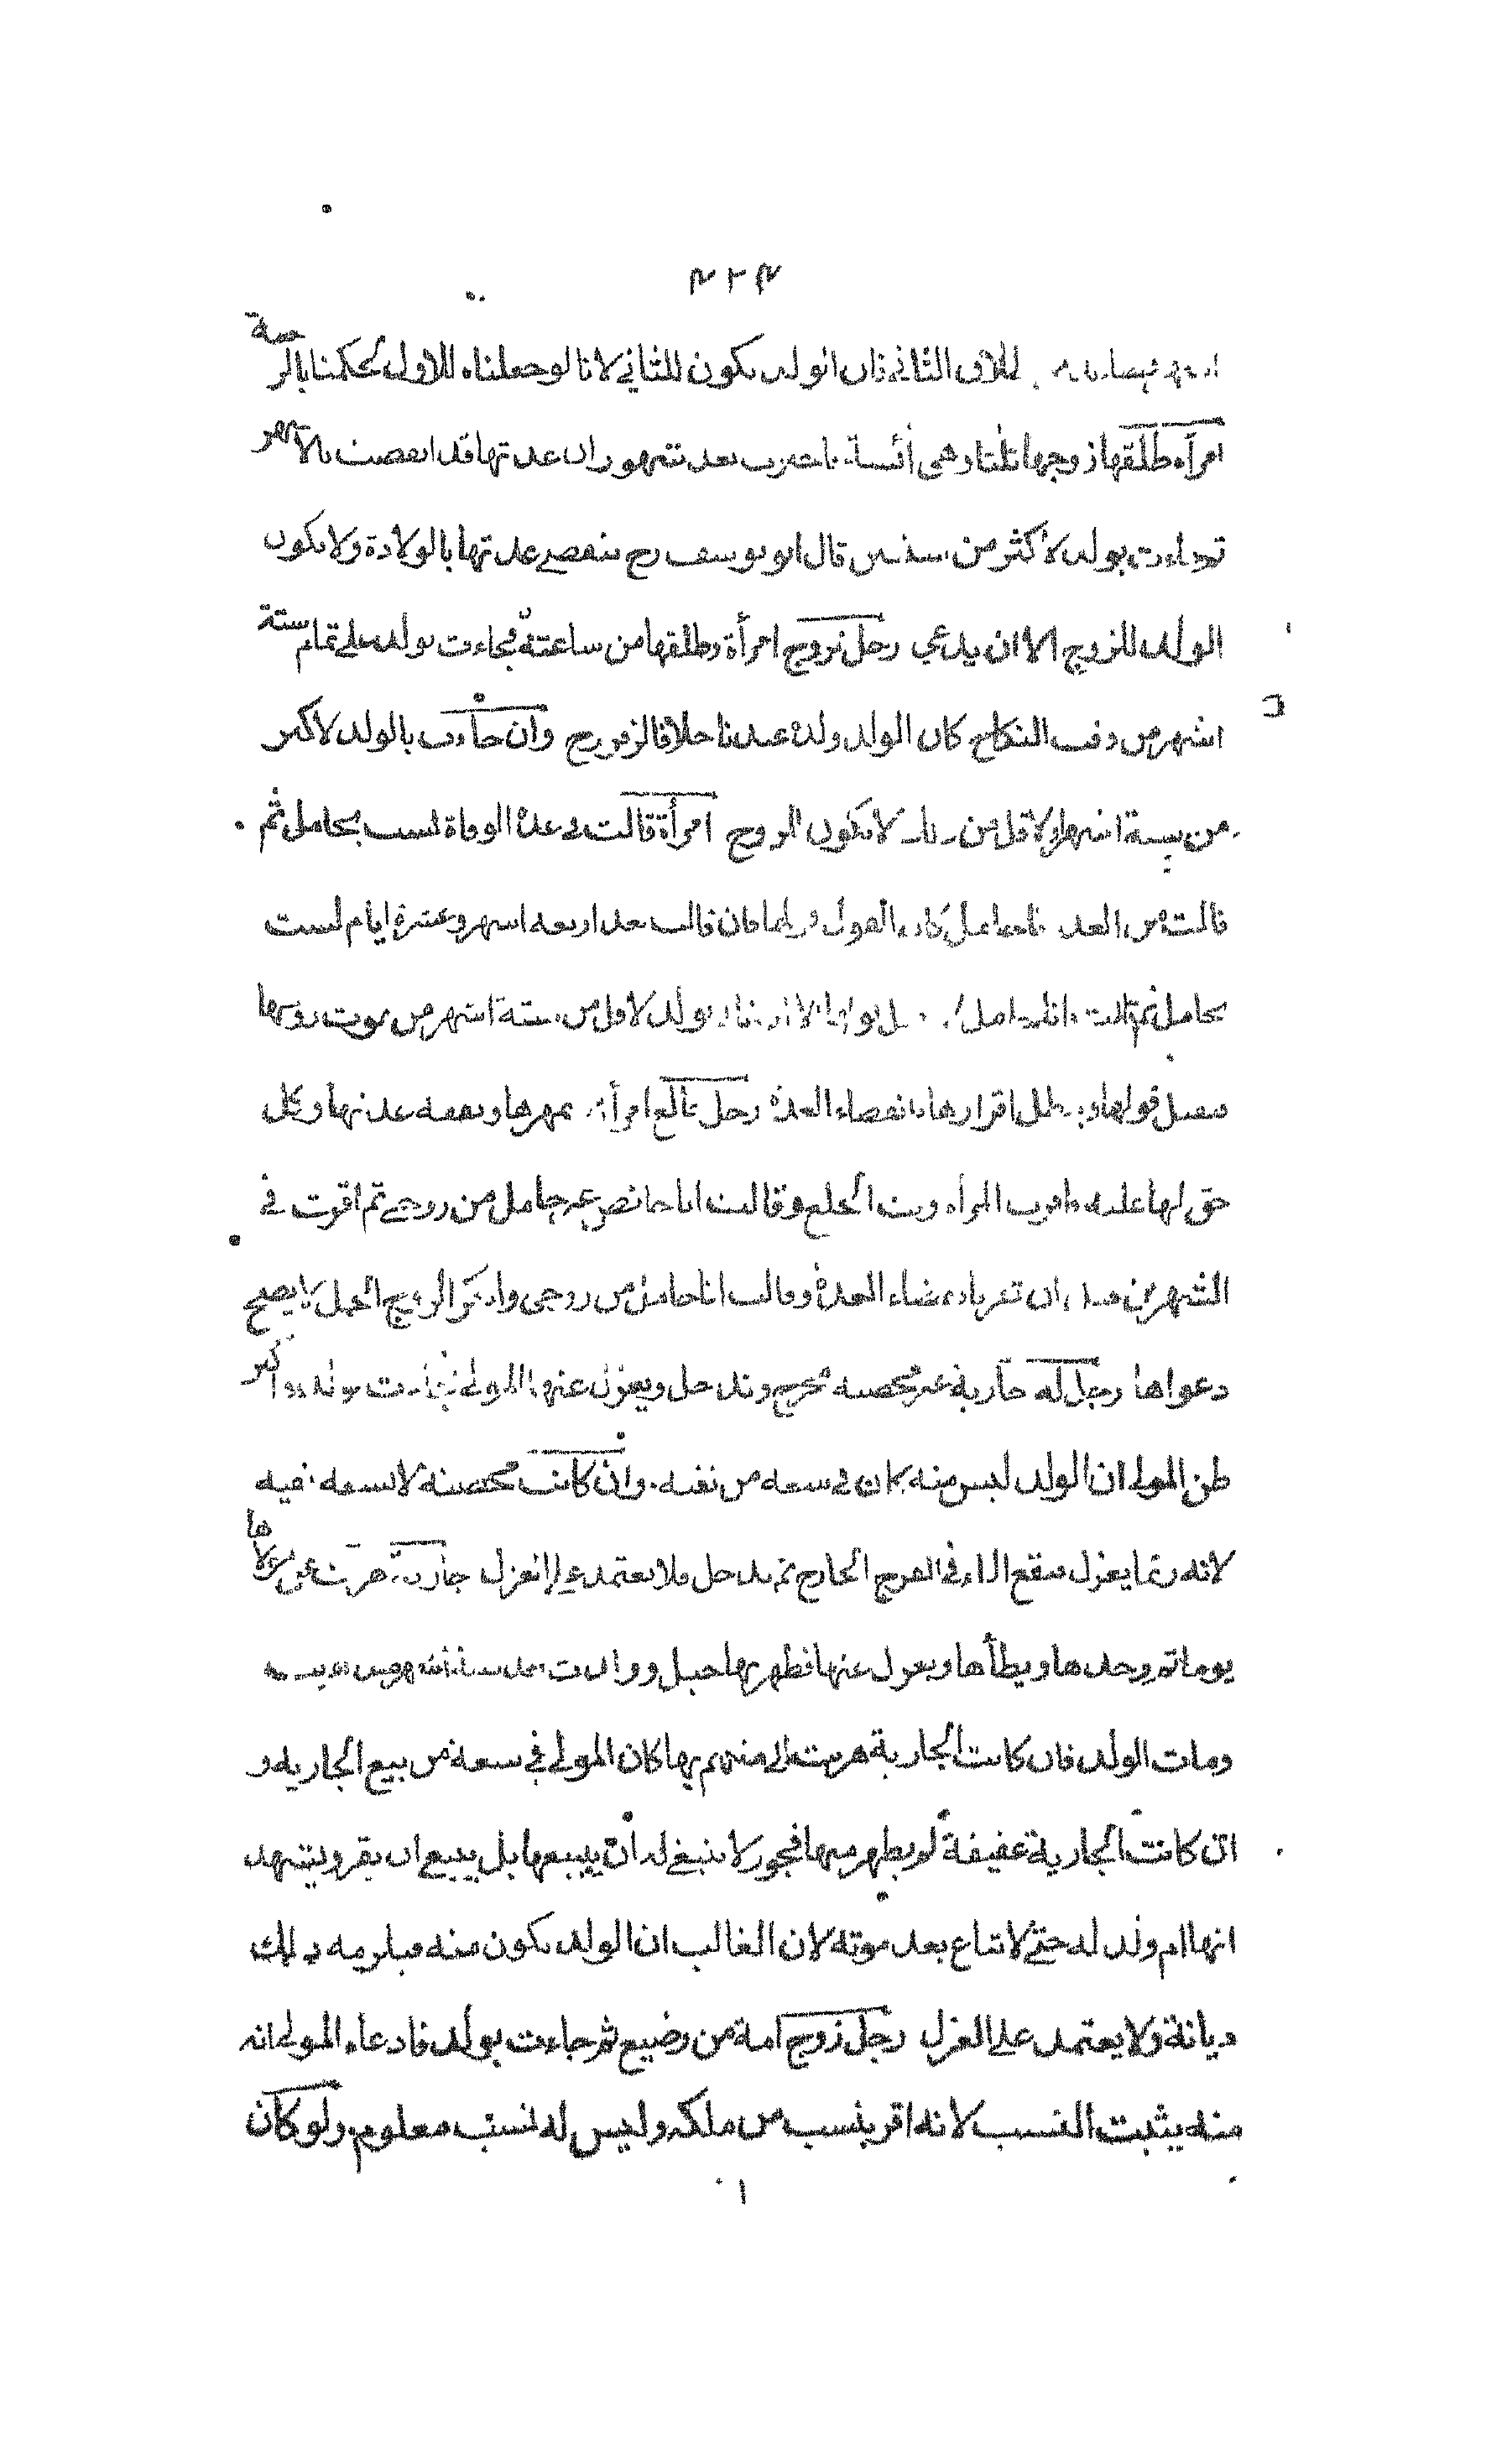 ٤٢٤
للاول الثاني فان الولد يكون للثاني لانا لو جعلناه للاول لحكمنا بالرجعة
امرأة طلقها زوجها ثلثا وهي آئسة بعد شهور ان عدتها قد انقضت بالاشهر
ثم جاءت بولد لاكثر من سنتين قال ابو يوسف رح تنقضي عدتها بالولادة ولا يكون
الولد للزوج الا ان يدعي رجل تزوج امرأة وطلقها من ساعته فجاءت بولد على تمام ستة
اشهر من وقت النكاح كان الولد ولده عندنا خلافا لزفر رح وان جاءت بالولد لاكثر
من ستة اشهر او لاقل من لا يكون الزوج امرأة قالت في عدة الوفاة لست بحامل ثم
قالت من الغد انا حامل كان القول قولها فان قالت بعد اربعة اشهر وعشرة ايام لست
بحامل ثم قالت انا حامل بولد لاقل من ستة اشهر من موت زوجها
فيقبل قولها ويبطل اقرارها بانقضاء العدة رجل خالع امرأته بمهرها ونفقة عدتها وبكل
حق لها عليه واقرت المرأة وقت الخلع وقالت انا حائض غير حامل من زوجي ثم اقرت في
الشهرين قبل ان تقر بانقضاء العدة وقالت انا حامل من زوجي وانكر الزوج الحمل لا يصح
دعواها رجل له جارية غير محصنة تخرج وتدخل ويعزل عنها المولى فجاءت بولد واكبر
ظن المولى ان الولد ليس منه كان في سعة من نفيه وان كانت محصنة لا يسعه نفيه
لانه ربما يعزل فيقع الماء في الفرج الخارج ثم يدخل فلا يعتمد على العزل جارية هربت عن مولاها
يوما ثم وجدها ويطأها ويعزل عنها فظهر بها حبل وولدت
ومات الولد فان كانت الجارية هربت الى متهم بها كان المولى في سعة من بيع الجارية و
ان كانت الجارية عفيفة لم يظهر منها فجور لا ينبغي له ان يبيعها بل ينبغي ان يقر ويشهد
انها ام ولد له حتى لا تباع بعد موته لان الغالب ان الولد يكون منه فيلزمه ذلك
ديانة ولا يعتمد على العزل رجل زوج امة من رضيع ثم جاءت بولد فادعاه المولى انه
منه يثبت النسب لانه اقر بنسب من ملكه وليس له نسب معلوم ولو كان